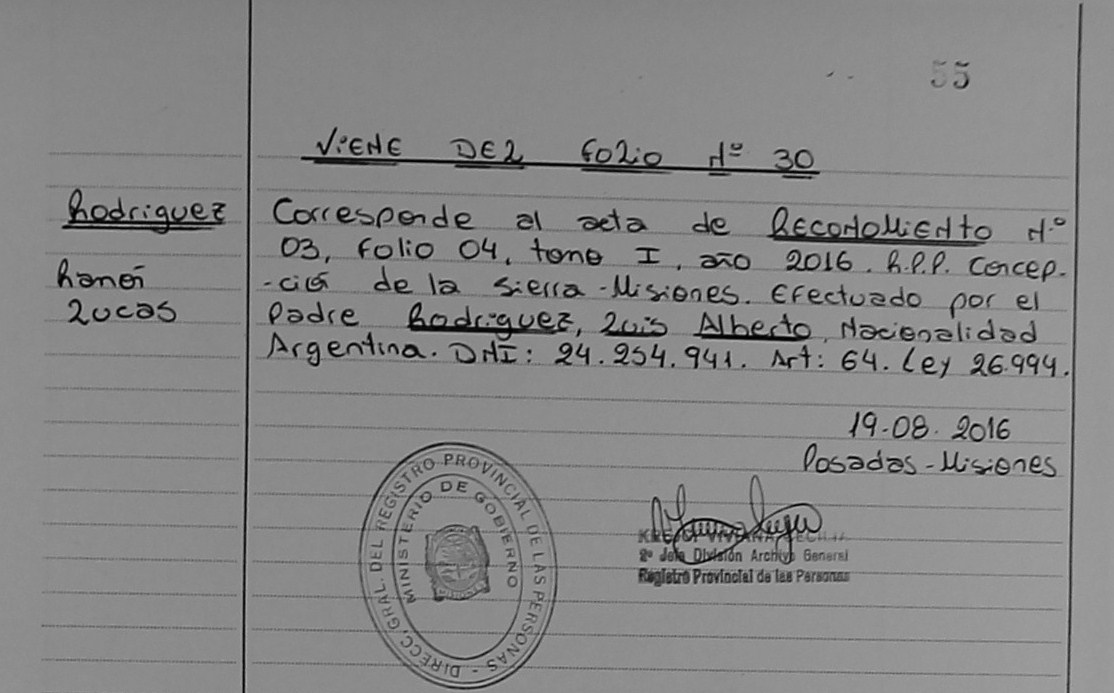 55
VIENE DEL FOLIO Nº 30
Rodriguez
Ramón
Lucas
Corresponde al acta de RECONOMIENTO N.º
03, Folio 04, tomo I, año 2016. R.P.P. Concep-
-ción de la Sierra-Misiones. Efectuado por el
Padre Rodriguez, Luis Alberto, Nacionalidad
Argentina. DNI: 24.254.941. Art: 64. Ley 26.994.
19-08-2016
Posadas-Misiones
DIRECC. GRAL. DEL REGISTRO PROVINCIAL DE LAS PERSONAS -
MINISTERIO DE GOBIERNO
VIVIANA
2º Jefe División Archivo General
Registro Provincial de las Personas